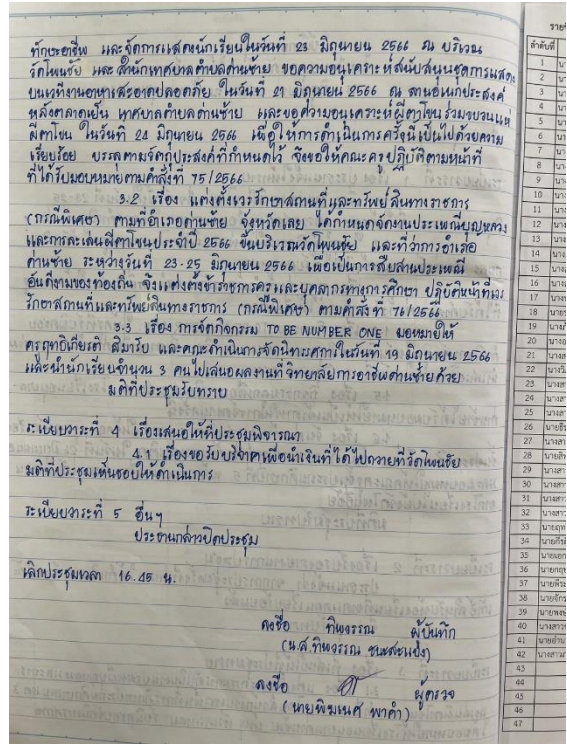 ทักษะอาชีพ และจัดการแสดงนักเรียนในวันที่ 23 มิถุนายน 2566 ณ บริเวณ
วัดโพนชัย และ สำนักเทศบาลตำบลด่านซ้าย ขอความอนุเคราะห์สนับสนุนชุดการแสดง
บนเวทีงานอาหารสะอาดปลอดภัย ในวันที่ 21 มิถุนายน 2566 ณ ลานอเนกประสงค์
หลังตลาดเย็น เทศบาลตำบลด่านซ้าย และขอความอนุเคราะห์ผีตาโขนร่วมขบวนแห่
ผีตาโขน ในวันที่ 24 มิถุนายน 2566 เพื่อให้การดำเนินการครั้งนี้เป็นไปด้วยความ
เรียบร้อย บรรลุตามวัตถุประสงค์ที่กำหนดไว้ จึงขอให้คณะครูปฏิบัติตามหน้าที่
ที่ได้รับมอบหมายตามคำสั่งที่ 75/2566
3.2 เรื่อง แต่งตั้งเวรรักษาสถานที่และทรัพย์สินทางราชการ
(กรณีพิเศษ) ตามที่อำเภอด่านซ้าย จังหวัดเลย ได้กำหนดจัดงานประเพณีบุญหลวง
และการละเล่นผีตาโขนประจำปี 2566 ขึ้นบริเวณวัดโพนชัย และที่ว่าการอำเภอ
ด่านซ้าย ระหว่างวันที่ 23-25 มิถุนายน 2566 เพื่อเป็นการสืบสานประเพณี
อันดีงามของท้องถิ่น จึงแต่งตั้งข้าราชการครูและบุคลากรทางการศึกษา ปฏิบัติหน้าที่เวร
รักษาสถานที่และทรัพย์สินทางราชการ (กรณีพิเศษ) ตามคำสั่งที่ 76/2566
3.3 เรื่อง การจัดกิจกรรม TO BE NUMBER ONE มอบหมายให้
ครูฤทธิเกียรติ สิมารับ และคณะดำเนินการจัดนิทรรศการในวันที่ 19 มิถุนายน 2566
และนำนักเรียนจำนวน 3 คนไปเสนอผลงานที่วิทยาลัยการอาชีพด่านซ้ายด้วย
มติที่ประชุมรับทราบ
ระเบียบวาระที่ 4 เรื่องเสนอให้ที่ประชุมพิจารณา
4.1 เรื่องขอรับบริจาคเพื่อนำเงินที่ได้ไปถวายที่วัดโพนชัย
มติที่ประชุมเห็นชอบให้ดำเนินการ
ระเบียบวาระที่ 5 อื่นๆ
ประธานกล่าวปิดประชุม
เลิกประชุมเวลา 16.45 น.
ลงชื่อ ทิพวรรณ ผู้บันทึก
(น.ส.ทิพวรรณ ชนะสะแบง)
ลงชื่อ ผู้ตรวจ
(นายพิฆเนศ พาคำ)
ลำดับที่
1
2
3
4
5
6
7
8
9
10
11
12
13
14
15
16
17
18
19
20
21
22
23
24
25
26
27
28
29
30
31
32
33
34
35
36
37
38
39
40
41
42
43
44
45
46
47